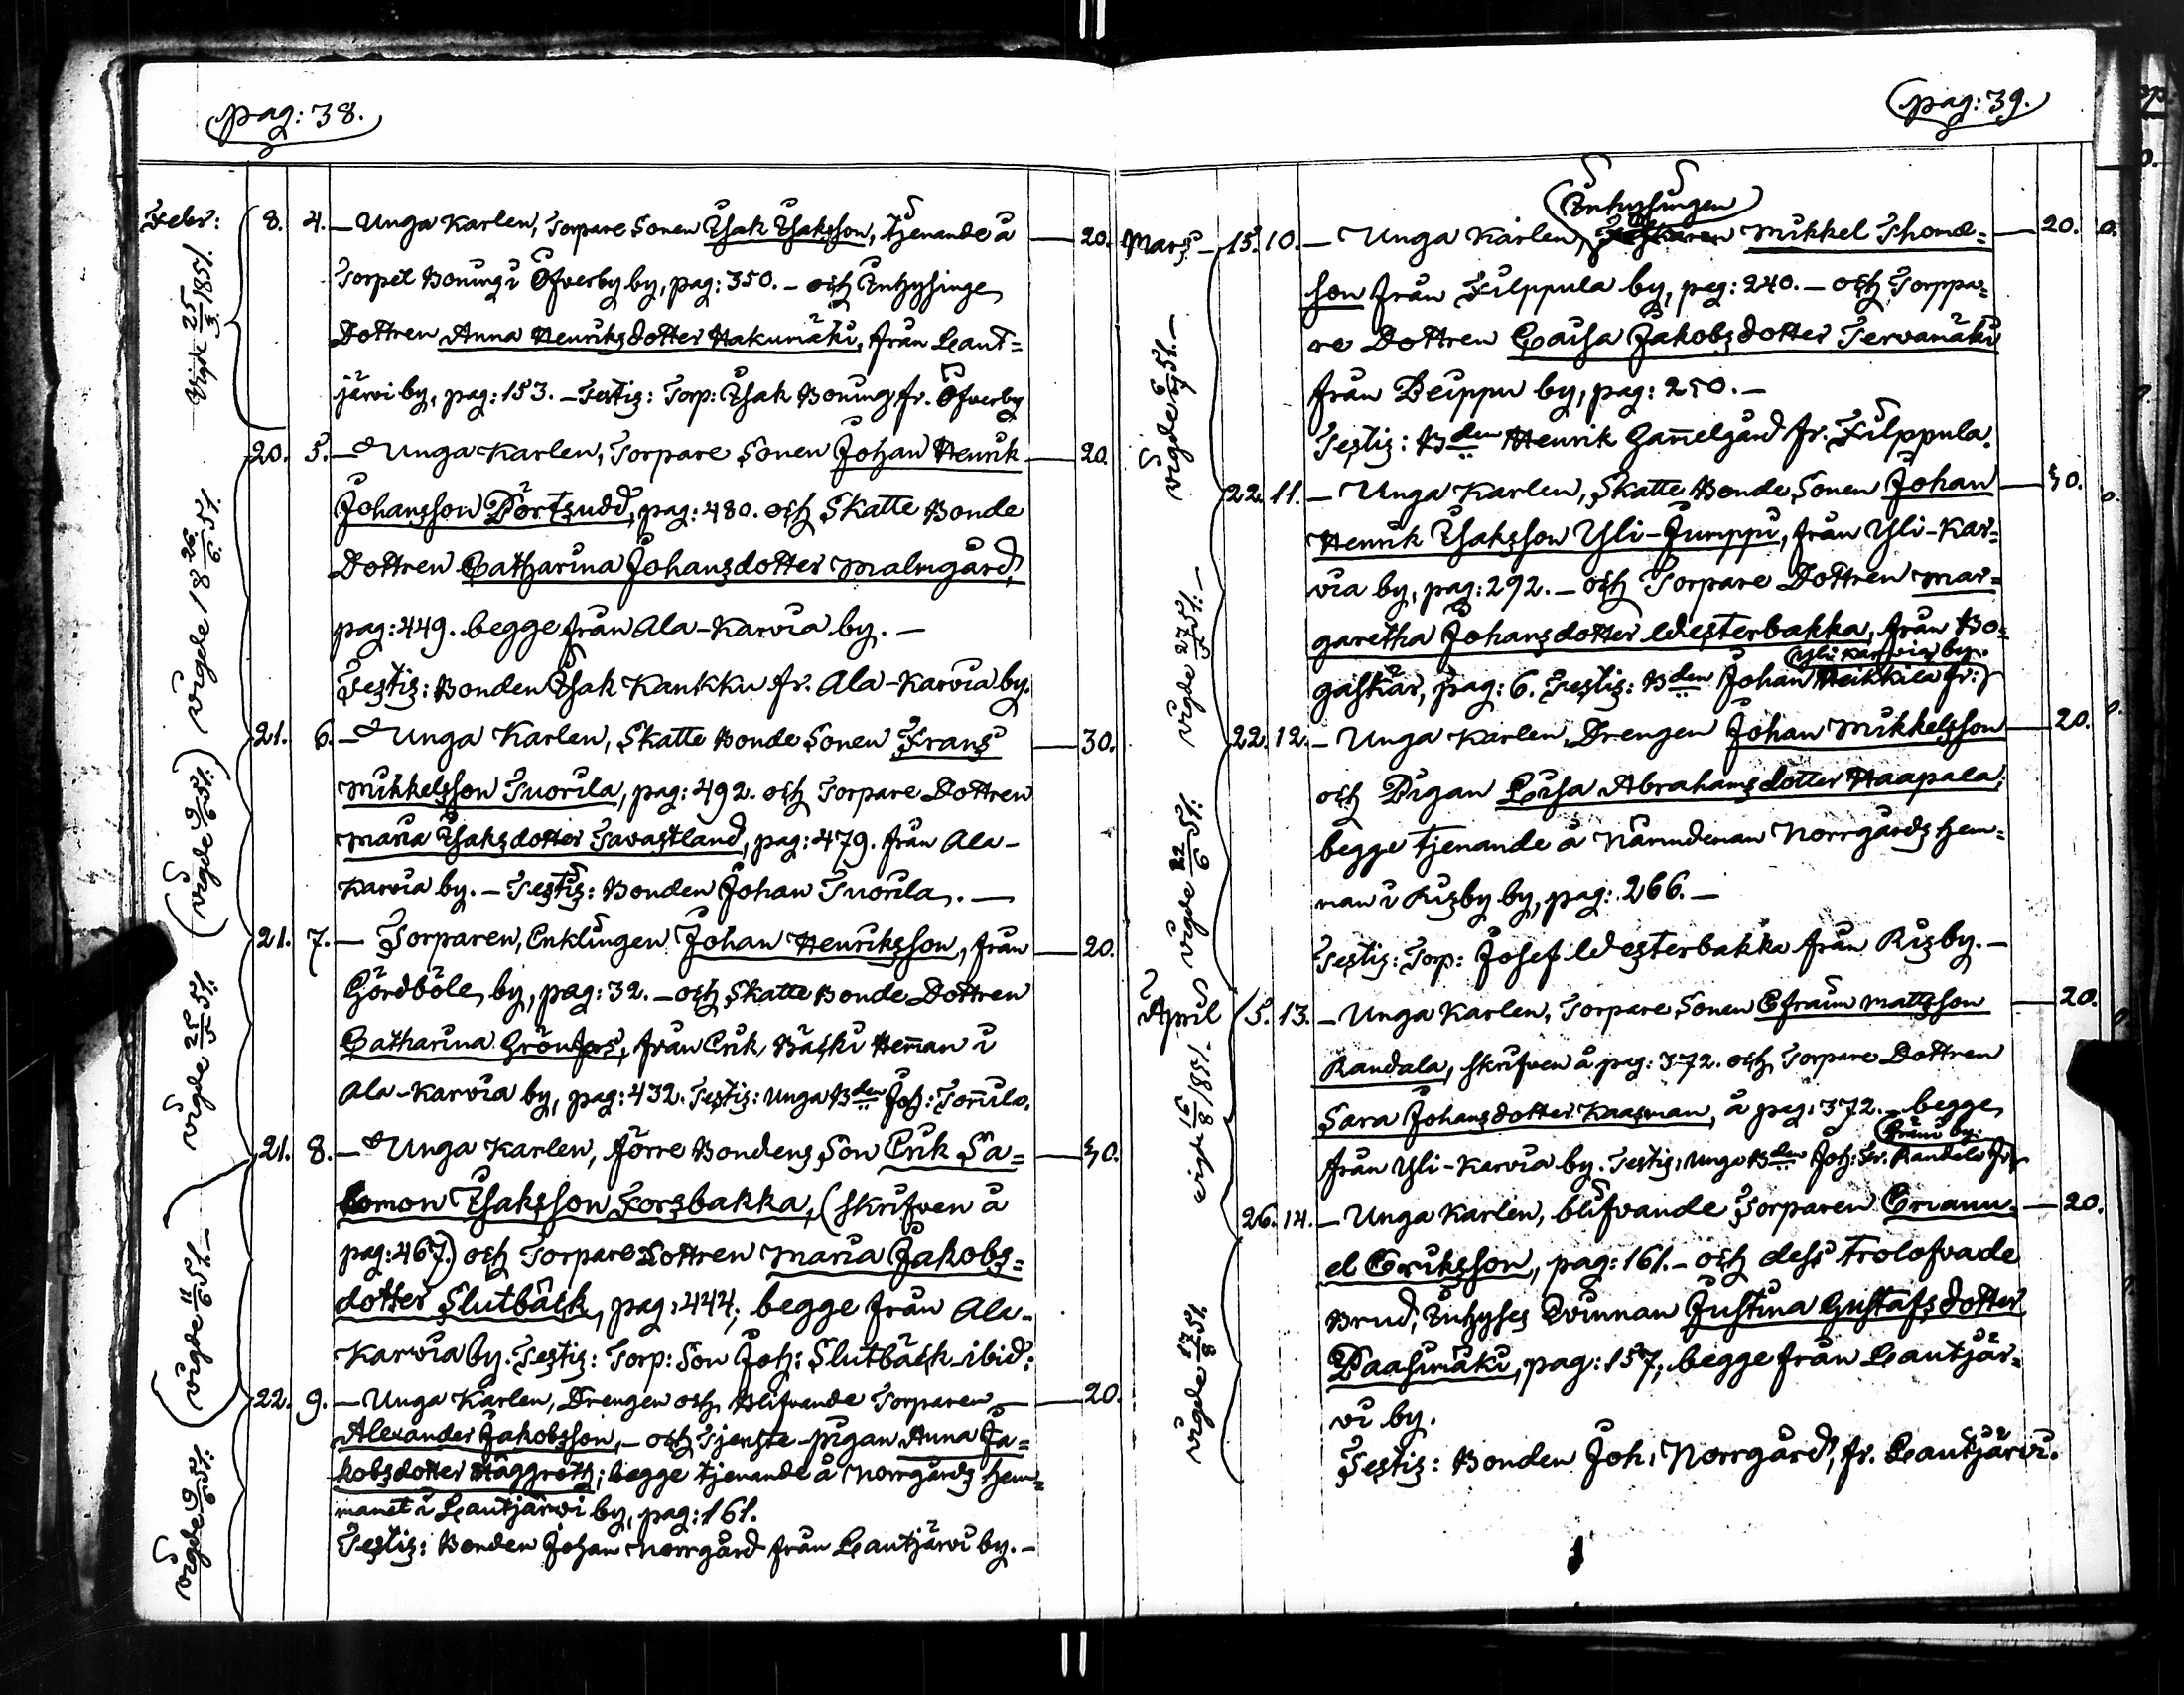 pag: 38.
Febr: 8. 4. — Unga Karlen, Torpare Sonen Isak Isaksson, tjenande å — 20.
Torpet Boning i Öfverby by, pag: 350. — och Inhysinge
Dottren Anna Henriksdotter Hakumäki, från Laut=
järvi by, pag: 153. — Testis: Torp: Isak Boning fr. Öfverby
Vigde 25/3 1851.
20. 5. — Unga Karlen, Torpare Sonen Johan Henrik — 20.
Johansson Pörtsudd, pag: 480. och Skatte Bonde
Dottren Catharina Johansdotter Malmgård,
pag: 449. begge från Ala-Karvia by. —
Testis: Bonden Isak Kankku fr. Ala-Karvia by.
vigde 18 26/6 51.
21. 6. — Unga Karlen, Skatte Bonde Sonen Frans — 30.
Mikkelsson Tuorila, pag: 492. och Torpare Dottren
Maria Isaksdotter Tavastland, pag: 479. från Ala-
Karvia by. — Testis: Bonden Johan Tuorila. —
(vigde 9/6 51.)
21. 7. — Torparen, Enklingen Johan Henriksson, från — 20.
Gördböle by, pag: 32. — och Skatte Bonde Dottren
Catharina Grönfors, från Erik Bäcki Heman i
Ala-Karvia by, pag: 432. Testis: Unga Bden Joh:
vigde 25/5 51.
21. 8. — Unga Karlen, förre Bondens Son Erik Sa= — 30.
lomon Isaksson Forsbakka, (skrifven å
pag: 467.) och Torpare Dottren Maria Jakobs=
dotter Slutbäck, pag: 444; begge från Ala-
Karvia by. Testis: Torp: Son Joh: Slutbäck ibid:
(vigde 11/6 51. —
22. 9. — Unga Karlen, Drengen och Blifvande Torparen — 20.
Alexander Jakobsson, — och Tjenste-pigan Anna Ja=
kobsdotter Häggroth; begge tjenande å Norrgårds Hem=
manet i Lautjärvi by, pag: 161.
Testis: Bonden Johan Norrgård från Lautjärvi by. —
vigde 9/6 51.
pag: 39.
Inhysingen
Mars — 15. 10. — Unga Karlen, Mikkel Thomæ= — 20.
son från Filppula by, pag: 240. — och Torppa=
re Dottren Caisa Jakobsdotter Tervamäki
från Peippu by, pag: 250. —
Testis: Bden Henrik Gamelgård fr. Filppula.
vigde 6/7 51. —
22. 11. — Unga Karlen, Skatte Bonde Sonen Johan — 30.
Henrik Isaksson Yli-Jumppi, från Yli-Kar=
via by, pag: 292. — och Torpare Dottren Mar=
garetha Johansdotter Westerbakka, från Bo=
Yli Karvia by.
gaskär, pag: 6. Testis: Bden Johan Heikkilä fr:
vigde 27/5 51. —
22. 12. — Unga Karlen, Drengen Johan Mikkelsson — 20.
och Pigan Lisa Abrahamsdotter Haapala;
begge tjenande å Nämndeman Norrgårds Hem=
man i Risby by, pag: 266. —
Testis: Torp: Josef Westerbakka från Risby. —
vigde 22/6 51.
April 5. 13. — Unga Karlen, Torpare Sonen Efraim Mattsson — 20.
Randala, skrifven å pag: 372. och Torpare Dottren
Sara Johansdotter Kaasman, å pag: 372. — begge
från Yli-Karvia by. Testis: Unga Bden Joh: Randala fr.
vigde 15/8 1851.
26. 14. — Unga Karlen, blifvande Torparen Emanu= — 20.
el Eriksson, pag: 161. — och dess Trolofvade
Brud, Inhyses Qvinnan Justina Gustafsdotter
Paasimäki, pag: 157; begge från Lautjär=
vi by.
Testis: Bonden Joh: Norrgård, fr. Lautjärvi.
vigde 17/8 51.